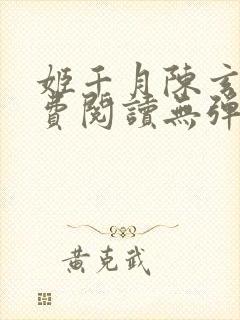 姬千月陳玄
費閱讀無彈
黃克武